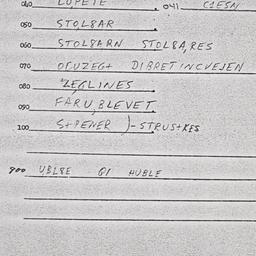 040 LUPETE 041 C1ESN
050 STOL8AR
060 STOL8ARN STOL8A,RES
070 DIBRET INCVEJEN
080 ZEGLINES
090 FARU,BLEVET
100 STPENER )-STRUSTKES
900 UBL8E GI HUBLE